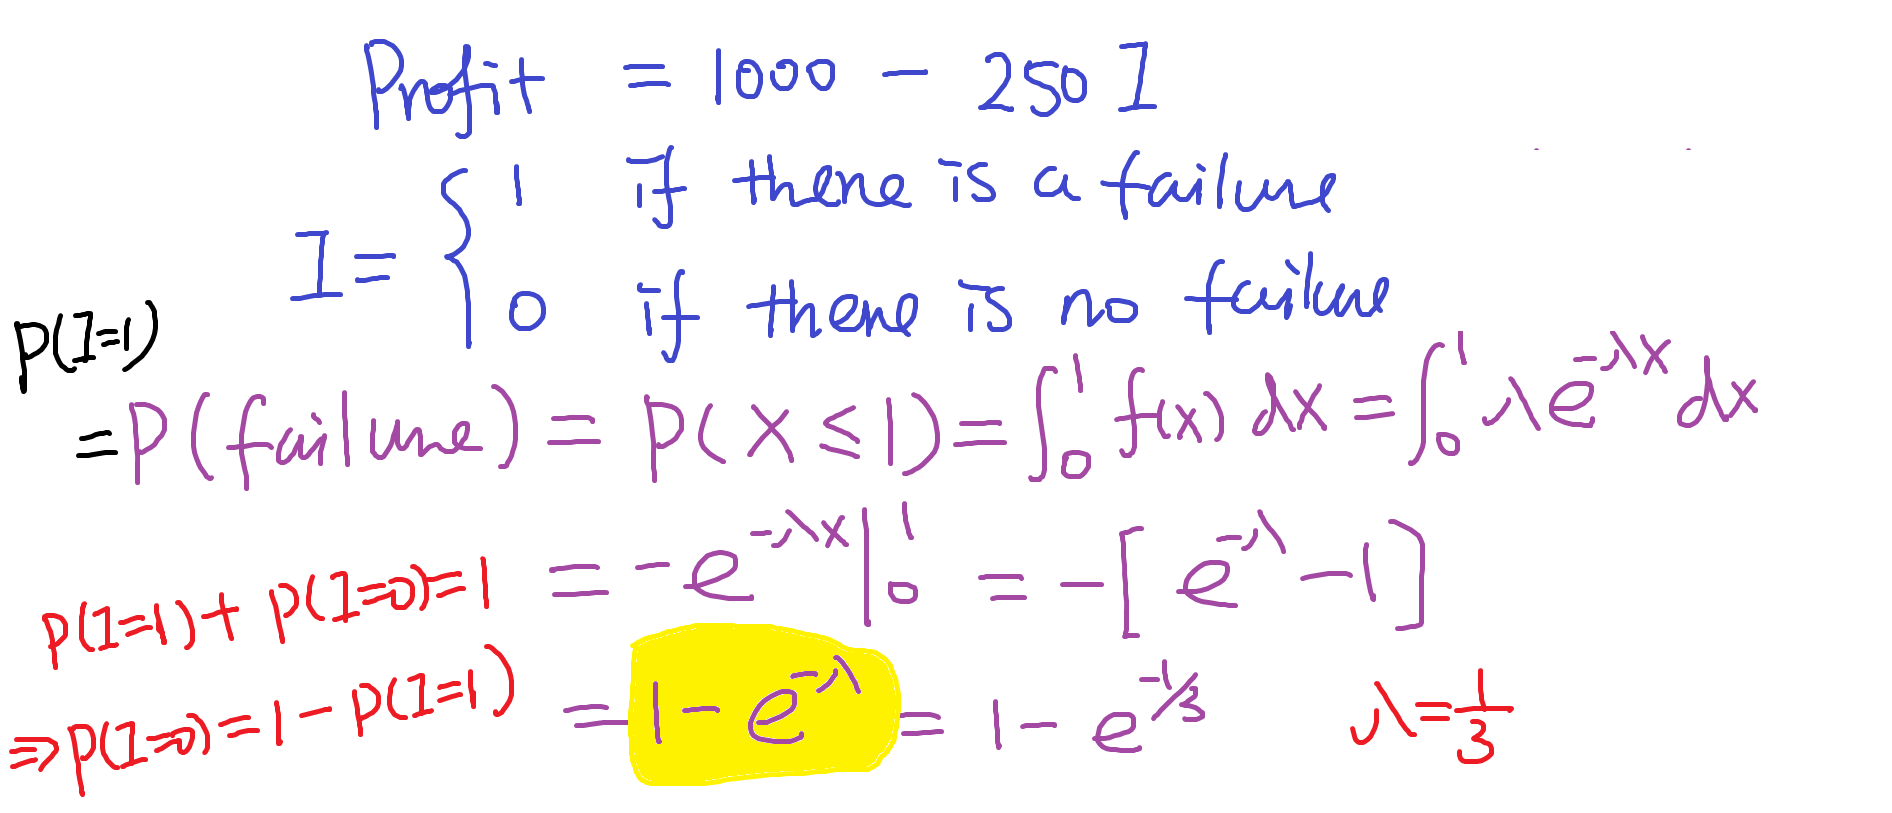 Profit = 1000 - 250 I
I = { 1 if there is a failure
0 if there is no failure
P(I=1)
= P(failure) = P(X ≤ 1) = ∫₀¹ f(x) dx = ∫₀¹ λe^{-λx} dx
= -e^{-λx} |₀¹ = -[e^{-λ} - 1]
P(I=1) + P(I=0) = 1
= 1 - e^{-λ} = 1 - e^{-1/3} λ = 1/3
⇒ P(I=0) = 1 - P(I=1)